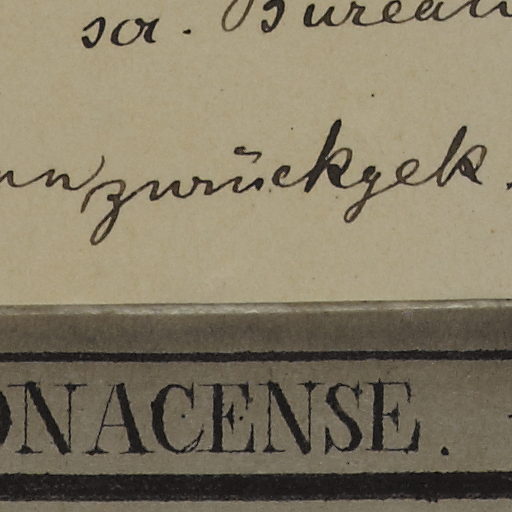 scr. Bureau
zurückgek.
ONACENSE.